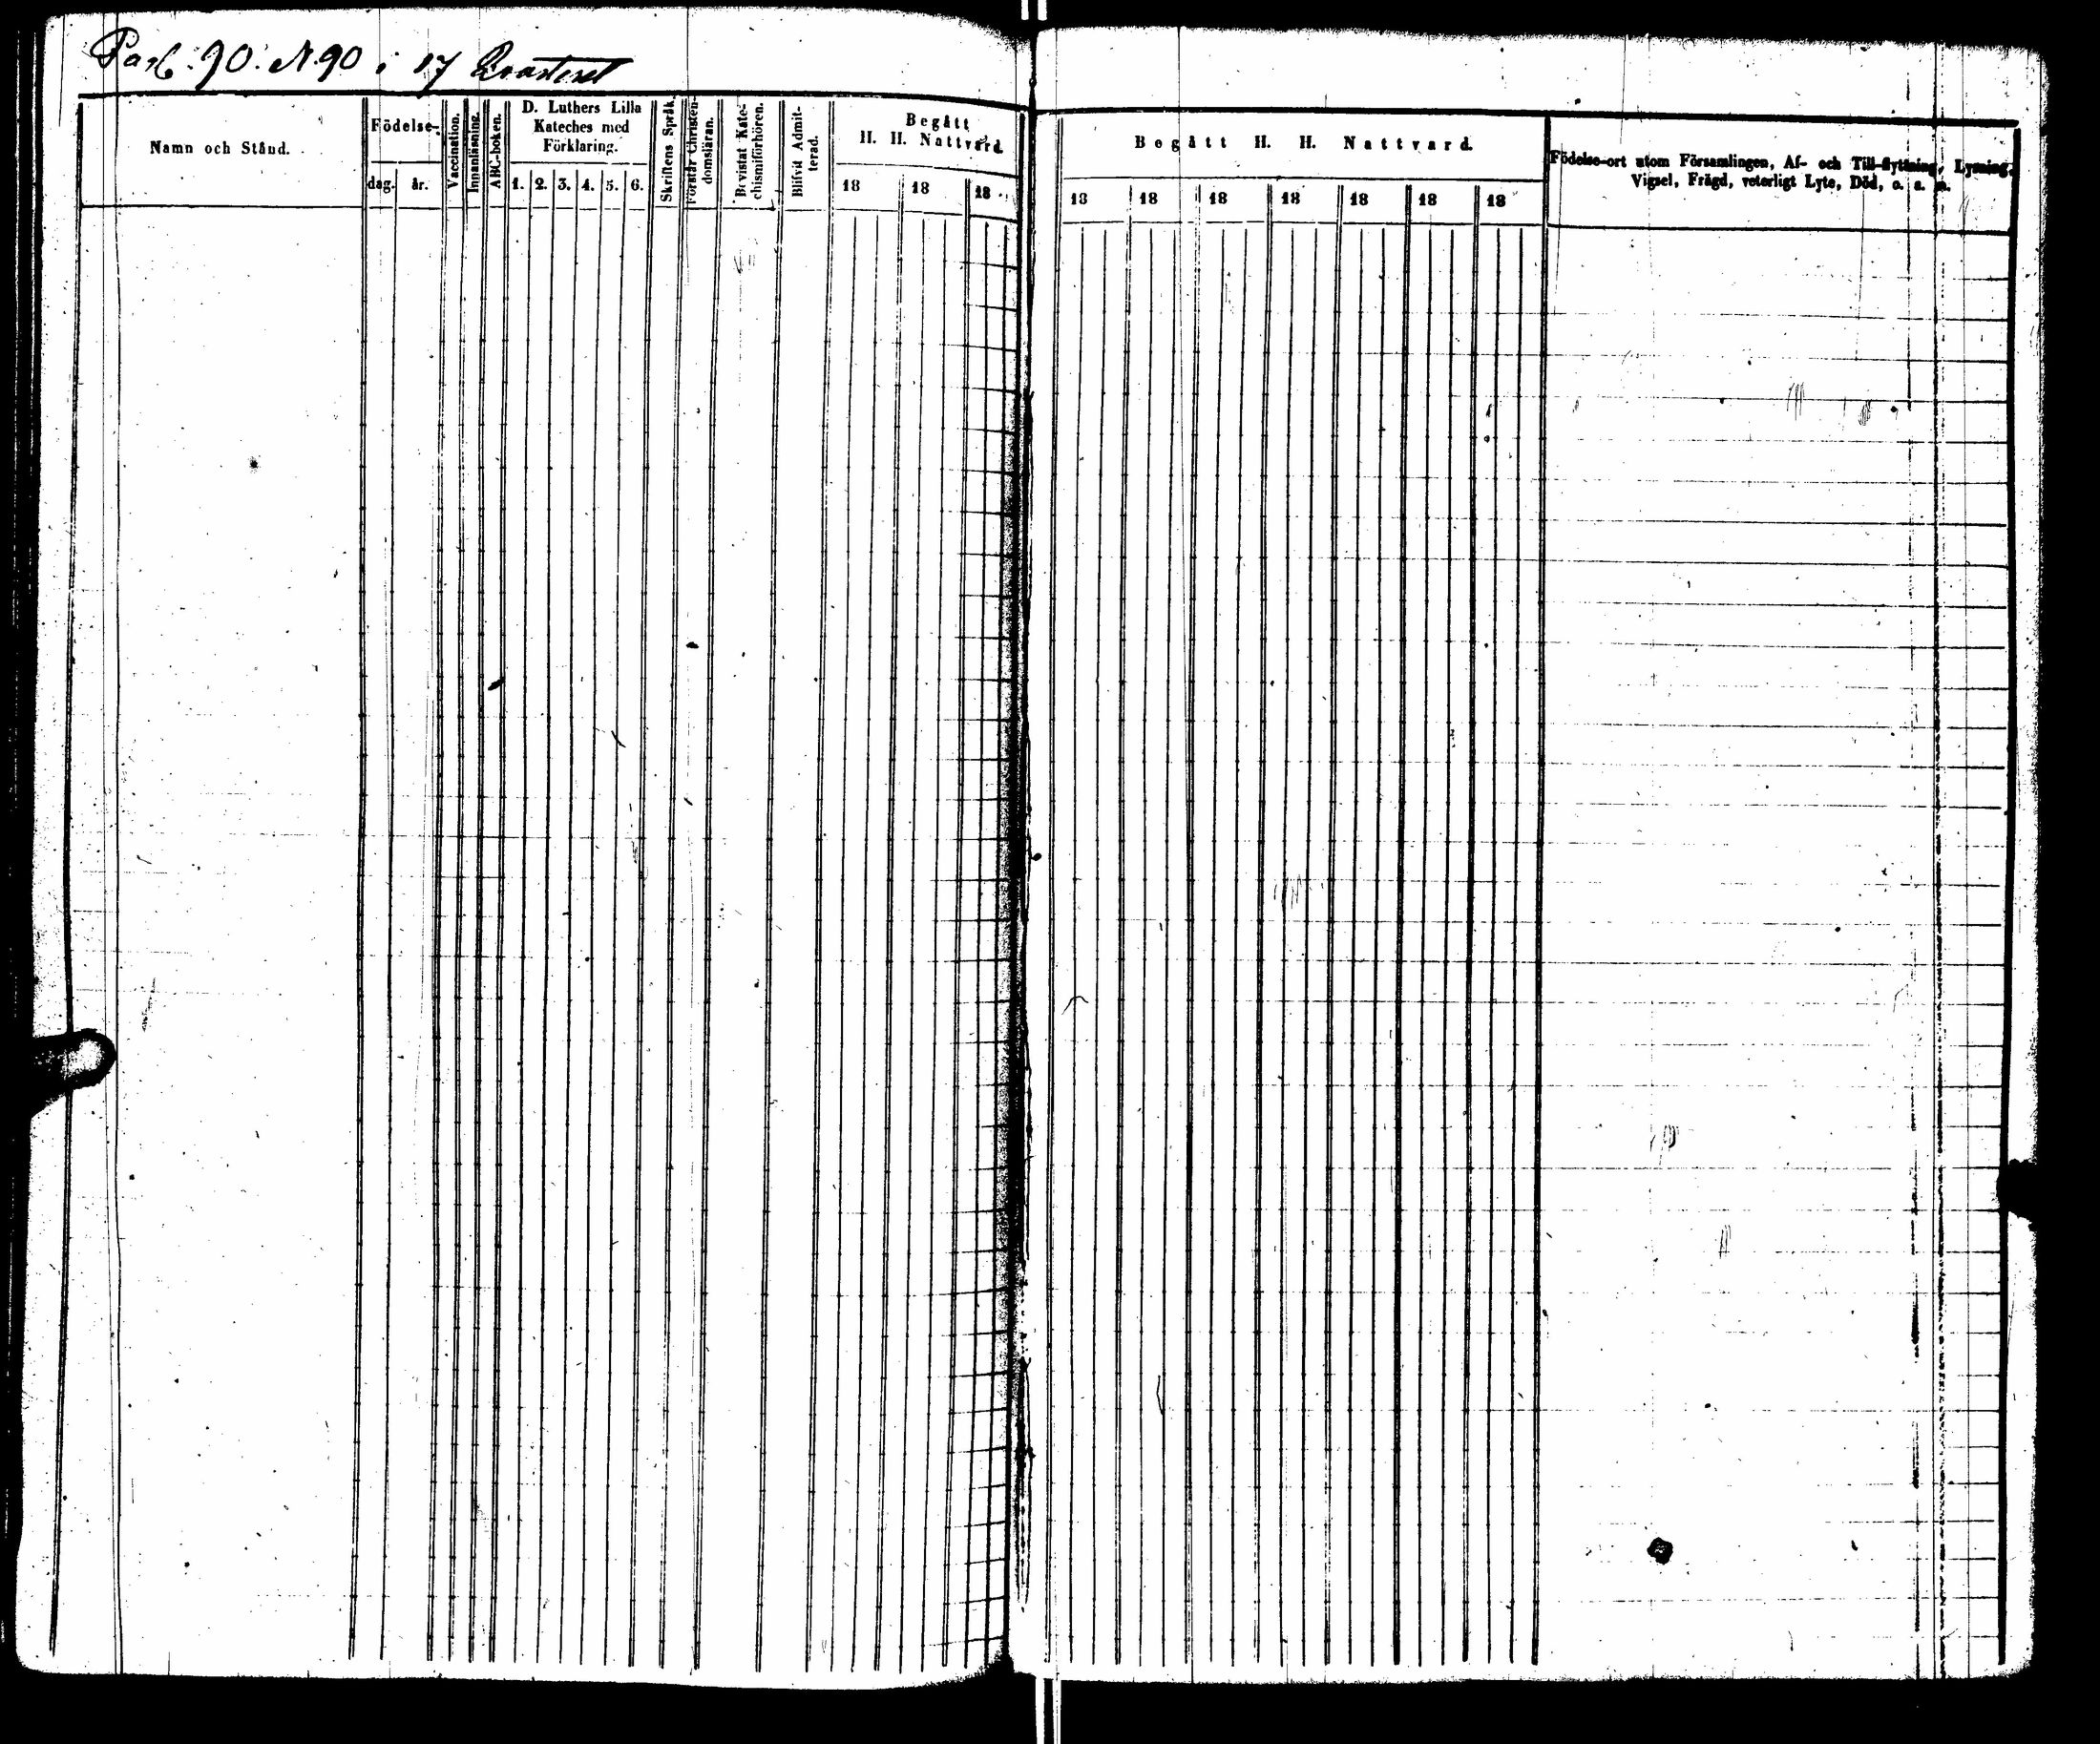 Pasb. 90. N 90 i 17 Qvarteret
Namn och Stånd.
Födelse-
dag. år.
Vaccination.
Innanläsning.
ABC-boken.
D. Luthers Lilla
Kateches med
Förklaring.
1. 2. 3. 4. 5. 6.
Skriftens Språk.
Förstår Christen-
domsläran.
Bevistat Kate-
chismiförhören.
Blifvit Admit-
terad.
Begått
H. H. Nattvard.
18 18 18
Begått H. H. Nattvard.
18 18 18 18 18 18 18
Födelse-ort utom Församlingen, Af- och Till-flyttning, Lysning,
Vigsel, Frägd, veterligt Lyte, Död, o. s. m.